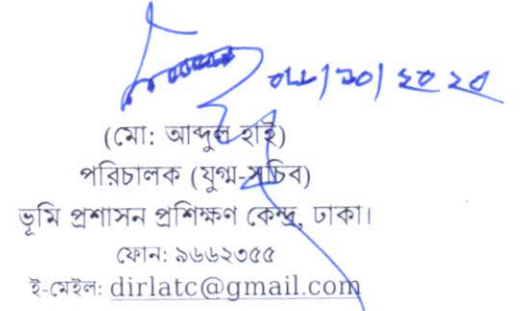 (মো: আব্দুল হাই)
পরিচালক (যুগ্ম-সচিব)
ভূমি প্রশাসন প্রশিক্ষণ কেন্দ্র, ঢাকা।
ফোন: ৯৬৬২৩৫৫
ই-মেইল: dirlatc@gmail.com